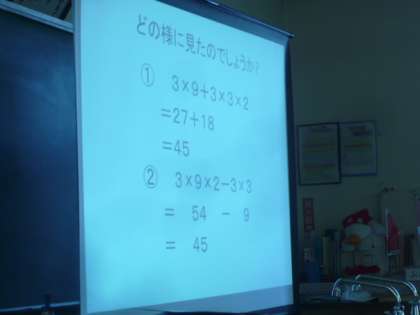 どの様に見たのでしょうか?
① 3×9+3×3×2
=27+18
=45
② 3×9×2-3×3
= 54 - 9
= 45